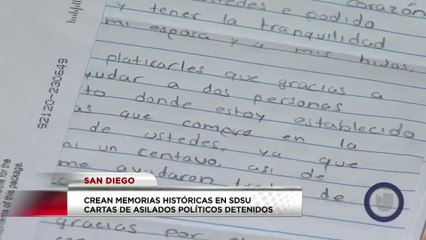 corazón
ustedes e podido
y tener la tranquilidad
mi esposa y a mis hijos,
platicarles que gracias a
ayudar a dos personas
to donde estoy establecido
as que compare en la
de ustedes, ya que
ni un centavo, asi de
me ayudaron
gracias por
92120-230649
of this package.
SAN DIEGO
CREAN MEMORIAS HISTÓRICAS EN SDSU
CARTAS DE ASILADOS POLÍTICOS DETENIDOS